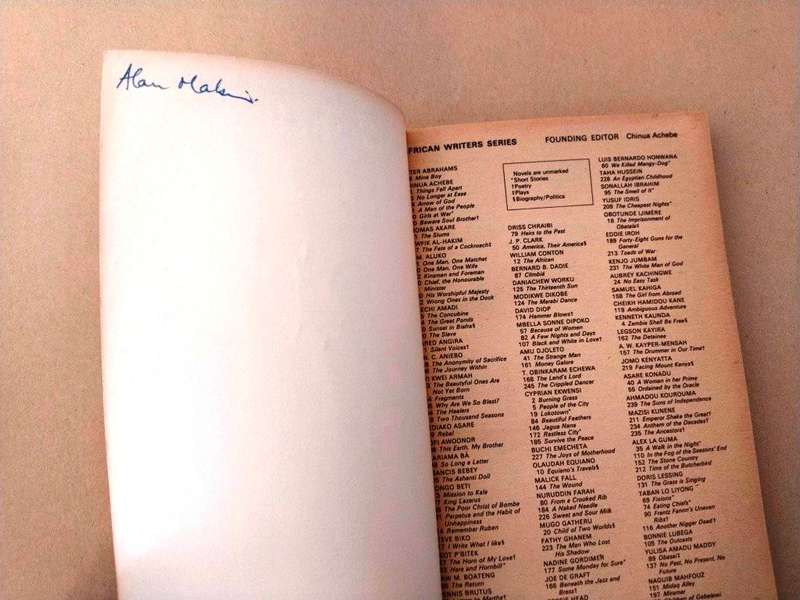 Alan
AFRICAN WRITERS SERIES
FOUNDING EDITOR Chinua Achebe
Novels are unmarked
*Short Stories
†Poetry
‡Plays
§Biography/Politics
ABRAHAMS
Mine Boy
ACHEBE
Things Fall Apart
No Longer at Ease
Arrow of God
A Man of the People
Girls at War*
Beware Soul Brother†
AKARE
The Slums
AL-HAKIM
The Fate of a Cockroach‡
ALUKO
One Man, One Matchet
One Man, One Wife
Kinsman and Foreman
Chief, the Honourable
Minister
His Worshipful Majesty
Wrong Ones in the Dock
AMADI
The Concubine
The Great Ponds
Sunset in Biafra§
The Slave
ANGIRA
Silent Voices†
C. ANIEBO
The Anonymity of Sacrifice
The Journey Within
KWEI ARMAH
The Beautyful Ones Are
Not Yet Born
Fragments
Why Are We So Blest?
The Healers
Two Thousand Seasons
ASARE
Rebel
AWOONOR
This Earth, My Brother
BÂ
So Long a Letter
BEBEY
The Ashanti Doll
BETI
Mission to Kala
King Lazarus
The Poor Christ of Bomba
Perpetua and the Habit of
Unhappiness
Remember Ruben
BIKO
I Write What I Like§
P'BITEK
The Horn of My Love†
Hare and Hornbill*
M. BOATENG
The Return
BRUTUS
DRISS CHRAIBI
79 Heirs to the Past
J. P. CLARK
50 America, Their America§
WILLIAM CONTON
12 The African
BERNARD B. DADIE
87 Climbié
DANIACHEW WORKU
125 The Thirteenth Sun
MODIKWE DIKOBE
124 The Marabi Dance
DAVID DIOP
174 Hammer Blows†
MBELLA SONNE DIPOKO
57 Because of Women
82 A Few Nights and Days
107 Black and White in Love†
AMU DJOLETO
41 The Strange Man
161 Money Galore
T. OBINKARAM ECHEWA
168 The Land's Lord
245 The Crippled Dancer
CYPRIAN EKWENSI
2 Burning Grass
5 People of the City
19 Lokotown*
84 Beautiful Feathers
146 Jagua Nana
172 Restless City*
185 Survive the Peace
BUCHI EMECHETA
227 The Joys of Motherhood
OLAUDAH EQUIANO
10 Equiano's Travels§
MALICK FALL
144 The Wound
NURUDDIN FARAH
80 From a Crooked Rib
184 A Naked Needle
226 Sweet and Sour Milk
MUGO GATHERU
20 Child of Two Worlds§
FATHY GHANEM
223 The Man Who Lost
His Shadow
NADINE GORDIMER
177 Some Monday for Sure*
JOE DE GRAFT
166 Beneath the Jazz and
Brass†
HEAD
LUIS BERNARDO HONWANA
60 We Killed Mangy-Dog*
TAHA HUSSEIN
228 An Egyptian Childhood
SONALLAH IBRAHIM
95 The Smell of It*
YUSUF IDRIS
209 The Cheapest Nights*
OBOTUNDE IJIMERE
18 The Imprisonment of
Obatala‡
EDDIE IROH
189 Forty-Eight Guns for the
General
213 Toads of War
KENJO JUMBAM
231 The White Man of God
AUBREY KACHINGWE
24 No Easy Task
SAMUEL KAHIGA
158 The Girl from Abroad
CHEIKH HAMIDOU KANE
119 Ambiguous Adventure
KENNETH KAUNDA
4 Zambia Shall Be Free§
LEGSON KAYIRA
162 The Detainee
A. W. KAYPER-MENSAH
157 The Drummer in Our Time†
JOMO KENYATTA
219 Facing Mount Kenya§
ASARE KONADU
40 A Woman in her Prime
55 Ordained by the Oracle
AHMADOU KOUROUMA
239 The Suns of Independence
MAZISI KUNENE
211 Emperor Shaka the Great†
234 Anthem of the Decades†
235 The Ancestors†
ALEX LA GUMA
35 A Walk in the Night*
110 In the Fog of the Seasons' End
152 The Stone Country
212 Time of the Butcherbird
DORIS LESSING
131 The Grass is Singing
TABAN LO LIYONG
69 Fixions*
74 Eating Chiefs*
90 Frantz Fanon's Uneven
Ribs†
116 Another Nigger Dead†
BONNIE LUBEGA
105 The Outcasts
YULISA AMADU MADDY
89 Obasai‡
137 No Past, No Present, No
Future
NAGUIB MAHFOUZ
151 Midaq Alley
197 Miramar
Children of Gebelawi